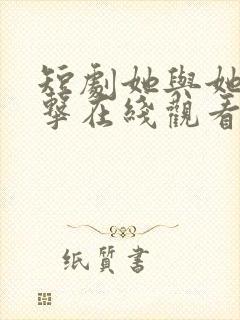 短劇她與她
擊在綫觀看
纸质書